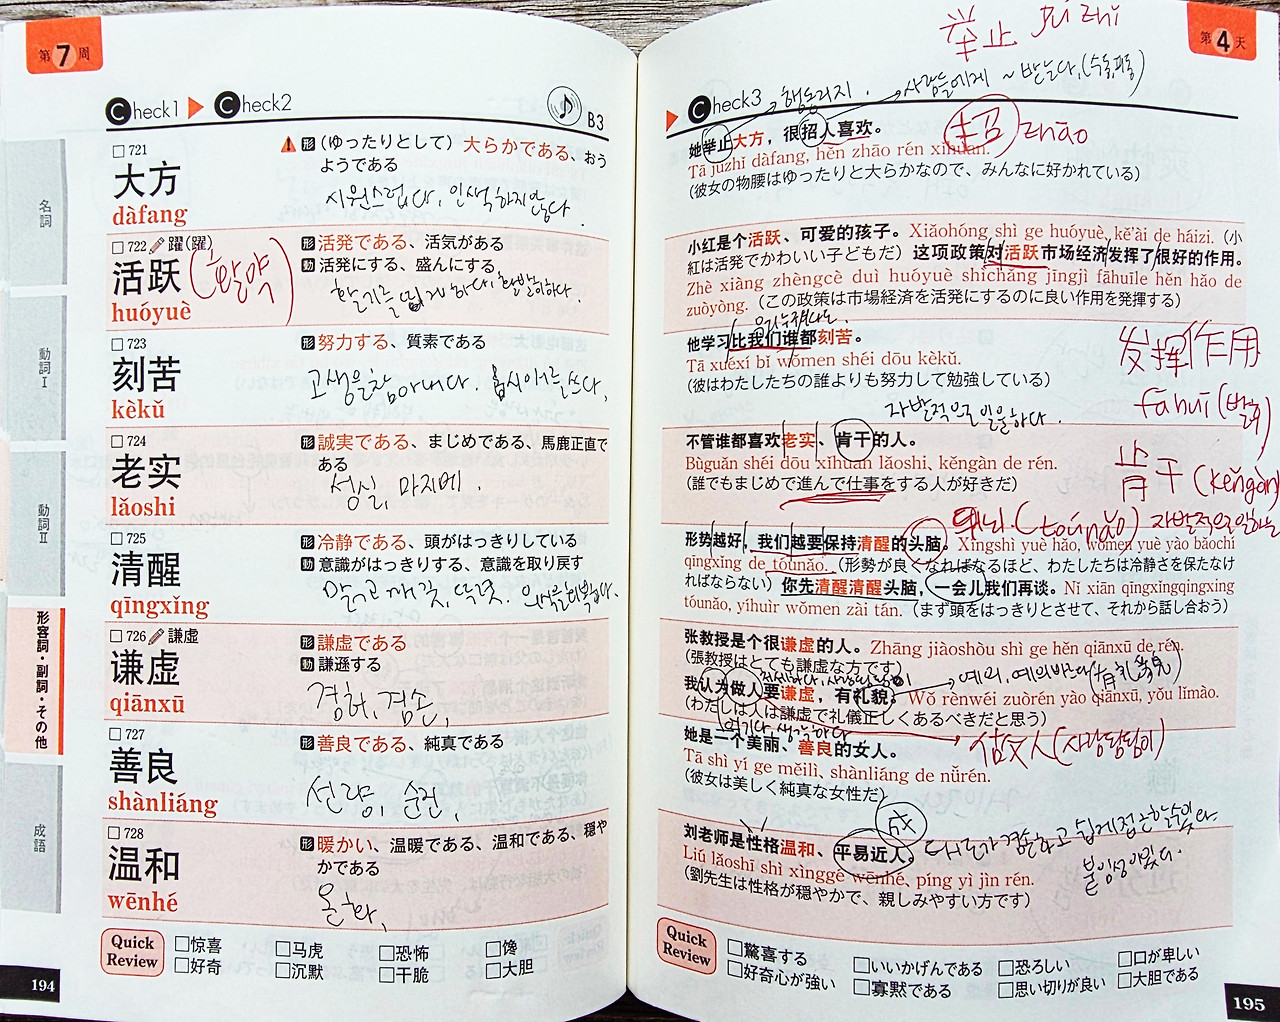 第7周
Check1 ▶ Check2
B3
名詞
動詞Ⅰ
動詞Ⅱ
形容詞・副詞・その他
成語
□ 721
大方
dàfang
形 (ゆったりとして) 大らかである、おう
ようである
시원스럽다, 인색하지않다
□ 722 躍(躍)
活跃 (활약)
huóyuè
形 活発である、活気がある
動 活発にする、盛んにする
활기를 띱게하다, 활발히하다.
□ 723
刻苦
kèkǔ
形 努力する、質素である
고생을참아내다, 몹시애를쓰다,
□ 724
老实
lǎoshi
形 誠実である、まじめである、馬鹿正直で
ある
성실, 마지메.
□ 725
清醒
qīngxǐng
形 冷静である、頭がはっきりしている
動 意識がはっきりする、意識を取り戻す
맑고 깨끗, 뚜렷. 의식을회복하다.
□ 726 謙虚
谦虚
qiānxū
形 謙虚である
動 謙遜する
겸허, 겸손,
□ 727
善良
shànliáng
形 善良である、純真である
선량, 순진,
□ 728
温和
wēnhé
形 暖かい、温暖である、温和である、穏や
かである
온화,
Quick Review
□惊喜 □马虎 □恐怖 □馋
□好奇 □沉默 □干脆 □大胆
194
举止 jǔ zhǐ
第4天
▶ Check3
행동거지.
사람들에게 ~ 받는다.(수동,피동)
招 zhāo
她举止大方，很招人喜欢。
Tā jǔzhǐ dàfang, hěn zhāo rén xǐhuan.
(彼女の物腰はゆったりと大らかなので、みんなに好かれている)
小红是个活跃、可爱的孩子。Xiǎohóng shì ge huóyuè, kě'ài de háizi. (小
紅は活発でかわいい子どもだ) 这项政策对活跃市场经济发挥了很好的作用。
Zhè xiàng zhèngcè duì huóyuè shìchǎng jīngjì fāhuīle hěn hǎo de
zuòyòng. (この政策は市場経済を活発にするのに良い作用を発揮する)
他学习比我们谁都刻苦。
Tā xuéxí bǐ wǒmen shéi dōu kèkǔ.
(彼はわたしたちの誰よりも努力して勉強している)
发挥作用
fāhuī (발휘)
자발적으로 일을하다.
不管谁都喜欢老实、肯干的人。
Bùguǎn shéi dōu xǐhuan lǎoshi, kěngàn de rén.
(誰でもまじめで進んで仕事をする人が好きだ)
肯干 (kěngàn)
자발적으로일하는
(tóunǎo)
形势越好，我们越要保持清醒的头脑。Xíngshì yuè hǎo, wǒmen yuè yào bǎochí
qīngxǐng de tóunǎo. (形勢が良くなればなるほど、わたしたちは冷静さを保たなけ
ればならない) 你先清醒清醒头脑，一会儿我们再谈。Nǐ xiān qīngxingqingxing
tóunǎo, yíhuìr wǒmen zài tán. (まず頭をはっきりとさせて、それから話し合おう)
张教授是个很谦虚的人。Zhāng jiàoshòu shì ge hěn qiānxū de rén.
(張教授はとても謙虚な方です)
我认为做人要谦虚，有礼貌。Wǒ rènwéi zuòrén yào qiānxū, yǒu lǐmào.
(わたしは人は謙虚で礼儀正しくあるべきだと思う)
여기다, 생각하다
做人(사람됨됨이)
她是一个美丽、善良的女人。
Tā shì yí ge měilì, shànliáng de nǚrén.
(彼女は美しく純真な女性だ)
成
刘老师是性格温和、平易近人。
Liú lǎoshī shì xìnggé wēnhé, píng yì jìn rén.
(劉先生は性格が穏やかで、親しみやすい方です)
태도가 겸손하고 쉽게접근할수있다.
붙임성이있다.
Quick Review
□驚喜する □いいかげんである □恐ろしい □口が卑しい
□好奇心が強い □寡黙である □思い切りが良い □大胆である
195